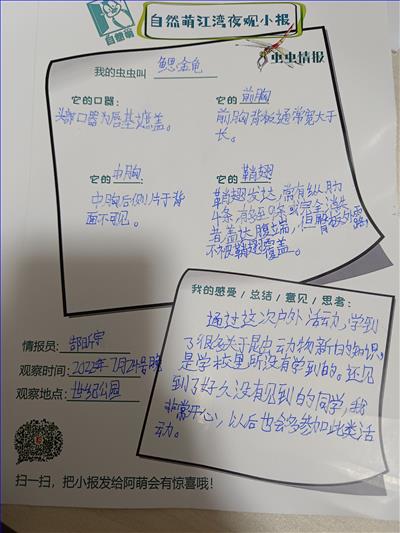 自然萌江湾夜观小报
自然萌
虫虫情报
我的虫虫叫 鳃金龟
它的口器：
头部口器为唇基遮盖。
它的前胸
前胸背板通常宽大于
长。
它的中胸：
中胸后侧片于背
面不可见。
它的鞘翅
鞘翅发达，常有纵肋
4条
或完全消失
者盖达腹端，但臀板外露
不被鞘翅覆盖。
我的感受／总结／意见／思考：
通过这次户外活动，学到
了很多关于昆虫动物新的知识。
是学校里所没有学到的。还见
到了好久没有见到的同学，我
非常开心，以后也会多参加此类活
动。
情报员：
观察时间：2022年7月24号晚
观察地点：世纪公园
扫一扫，把小报发给阿萌会有惊喜哦！